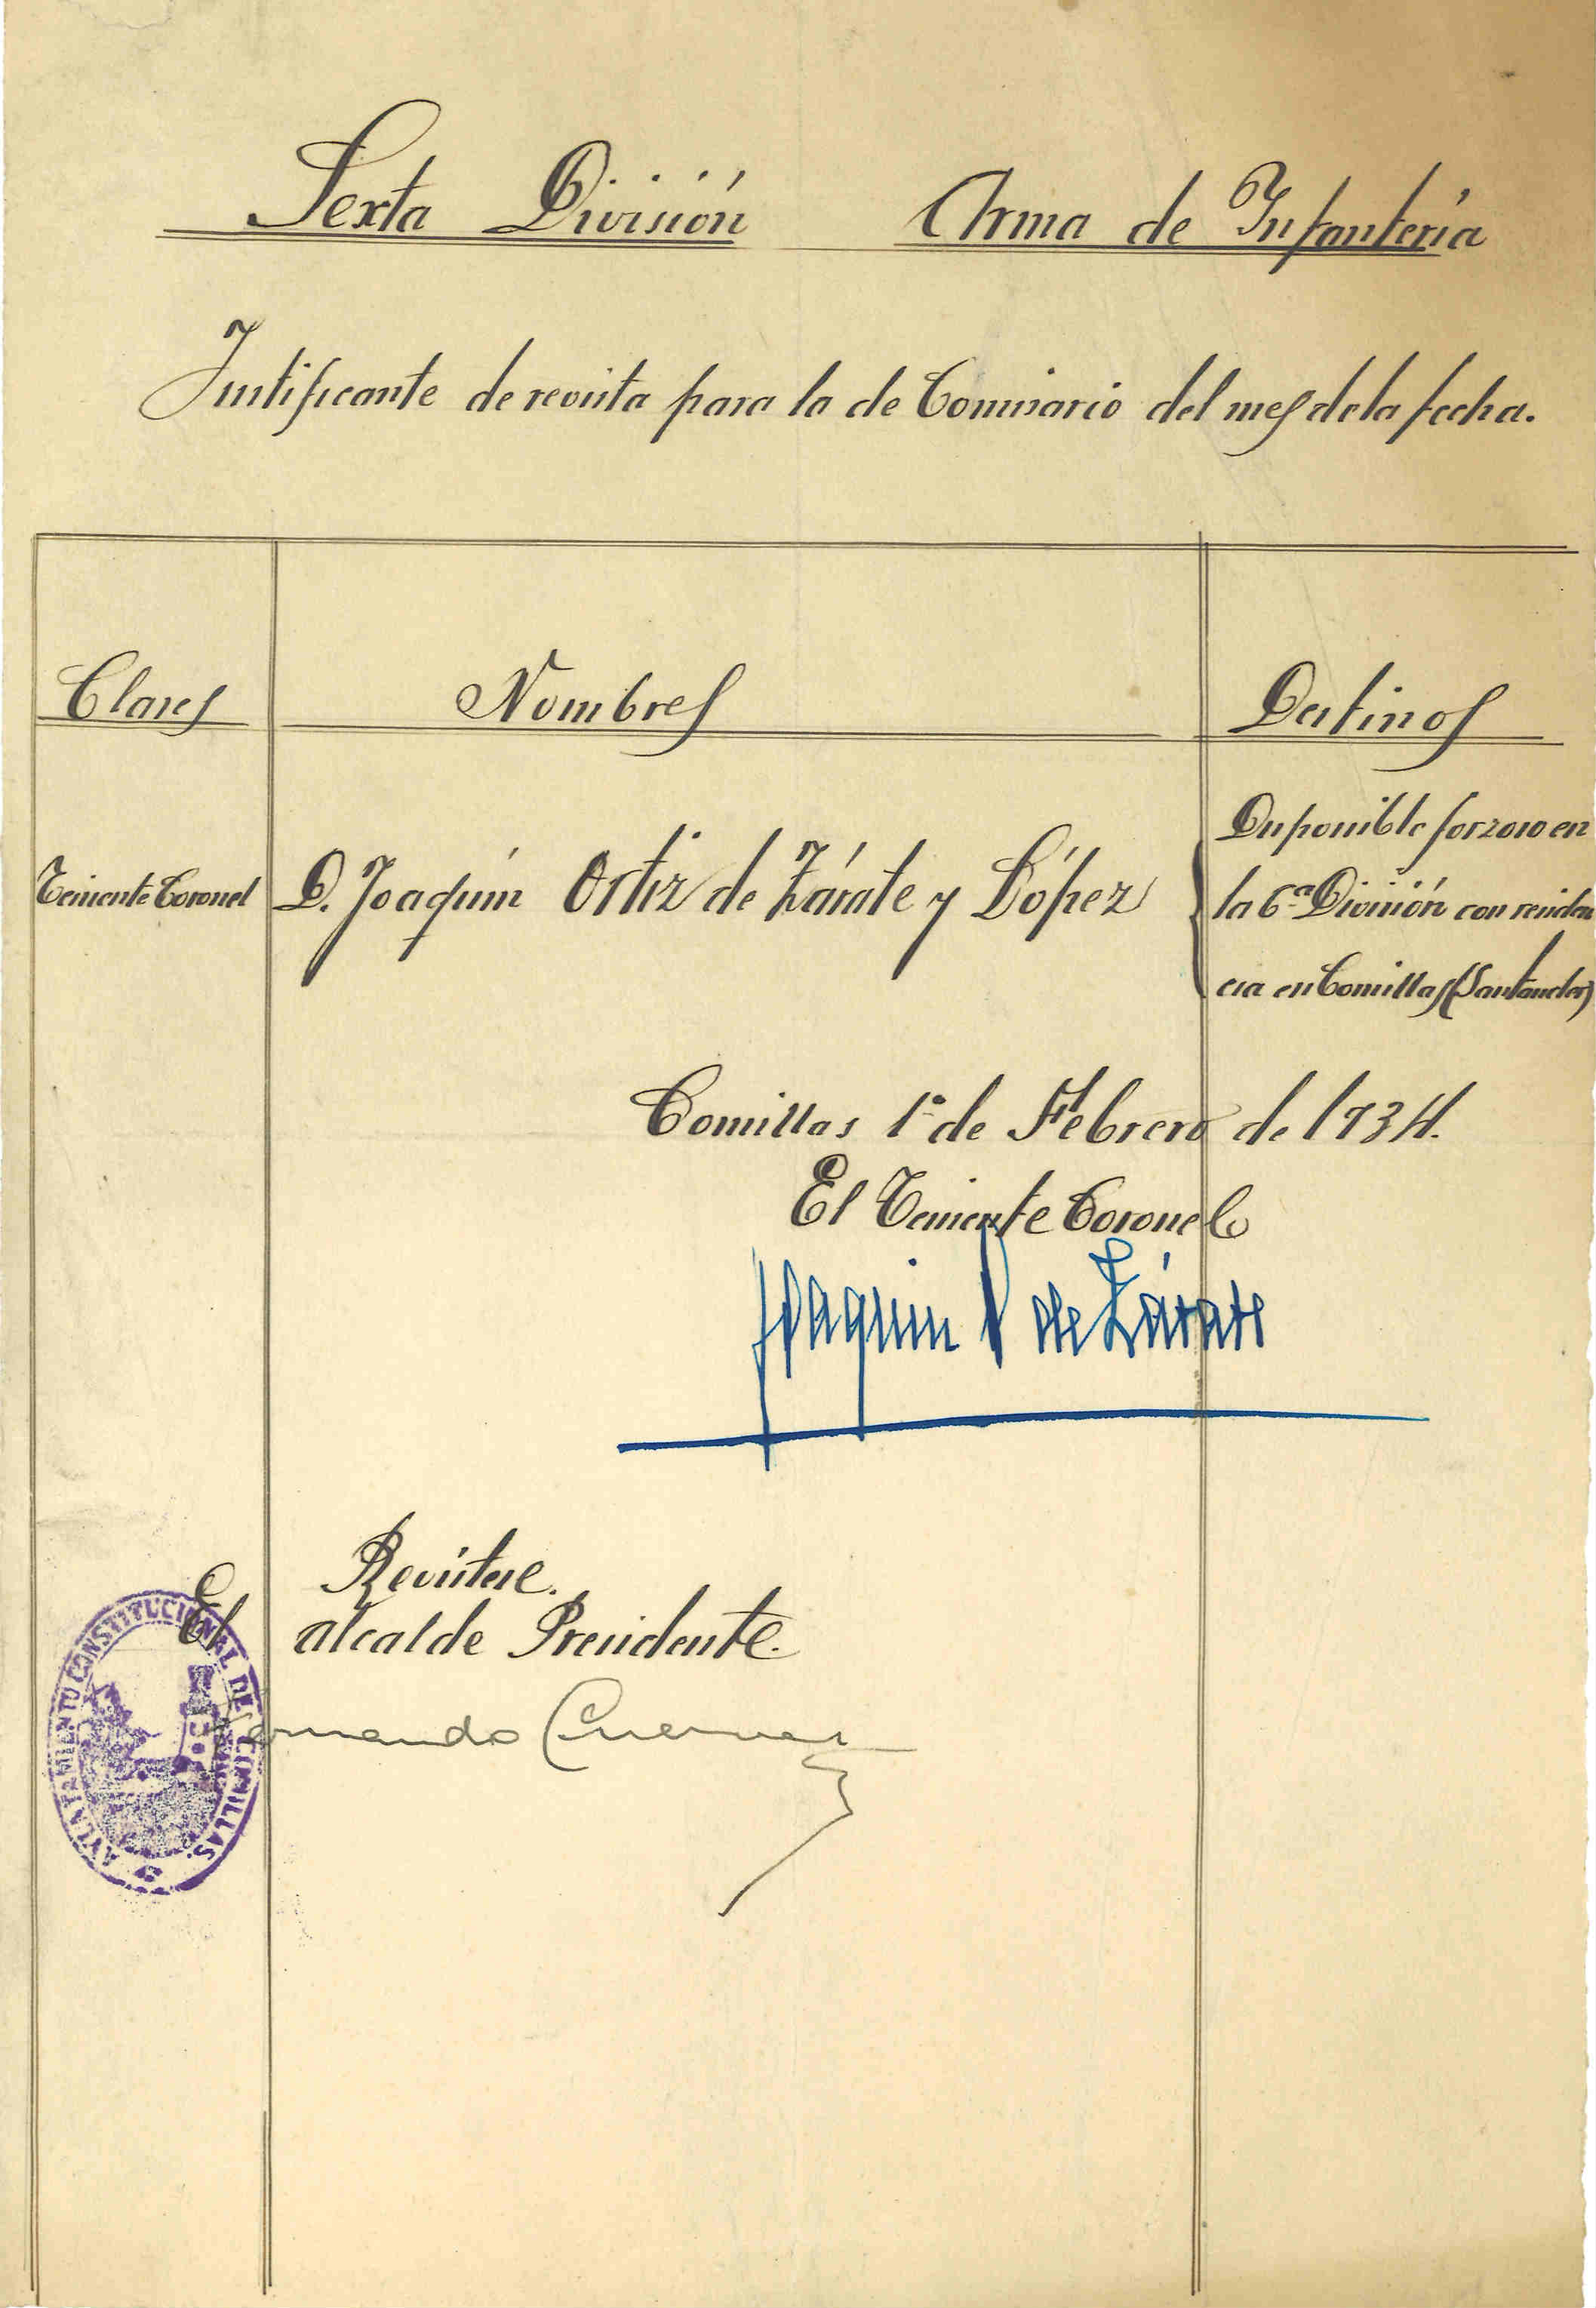 Sexta División Arma de Infantería
Justificante de revista para la de Comisario del mes de la fecha.
Clases Nombres Destinos
Teniente Coronel D. Joaquín Ortiz de Zárate y López
Disponible forzoso en
la 6ª División con residen
cia en Comillas (Santander)
Comillas 1º de Febrero de 1934.
El Teniente Coronel
Joaquin O de Zárate
Revístese.
El alcalde Presidente.
Fernando
AYUNTAMIENTO CONSTITUCIONAL DE COMILLAS